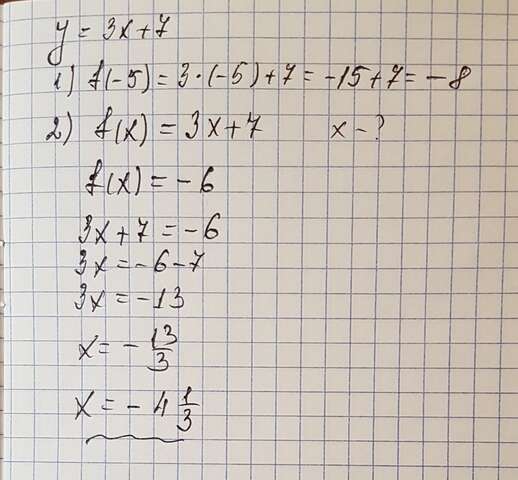 y = 3x+7
1) f(-5) = 3·(-5)+7 = -15+7 = -8
2) f(x) = 3x+7 x - ?
f(x) = -6
3x+7 = -6
3x = -6-7
3x = -13
x = - 13/3
x = - 4 1/3